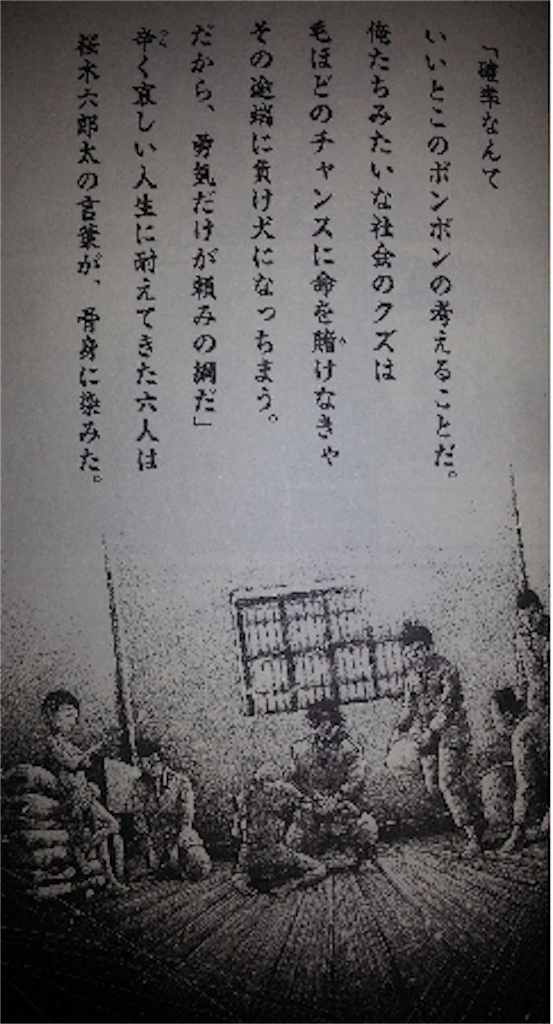 「確率なんて
いいとこのボンボンの考えることだ。
俺たちみたいな社会のクズは
毛ほどのチャンスに命を賭けなきゃ
その途端に負け犬になっちまう。
だから、勇気だけが頼みの綱だ」
辛く哀しい人生に耐えてきた六人は
桜木六郎太の言葉が、骨身に染みた。